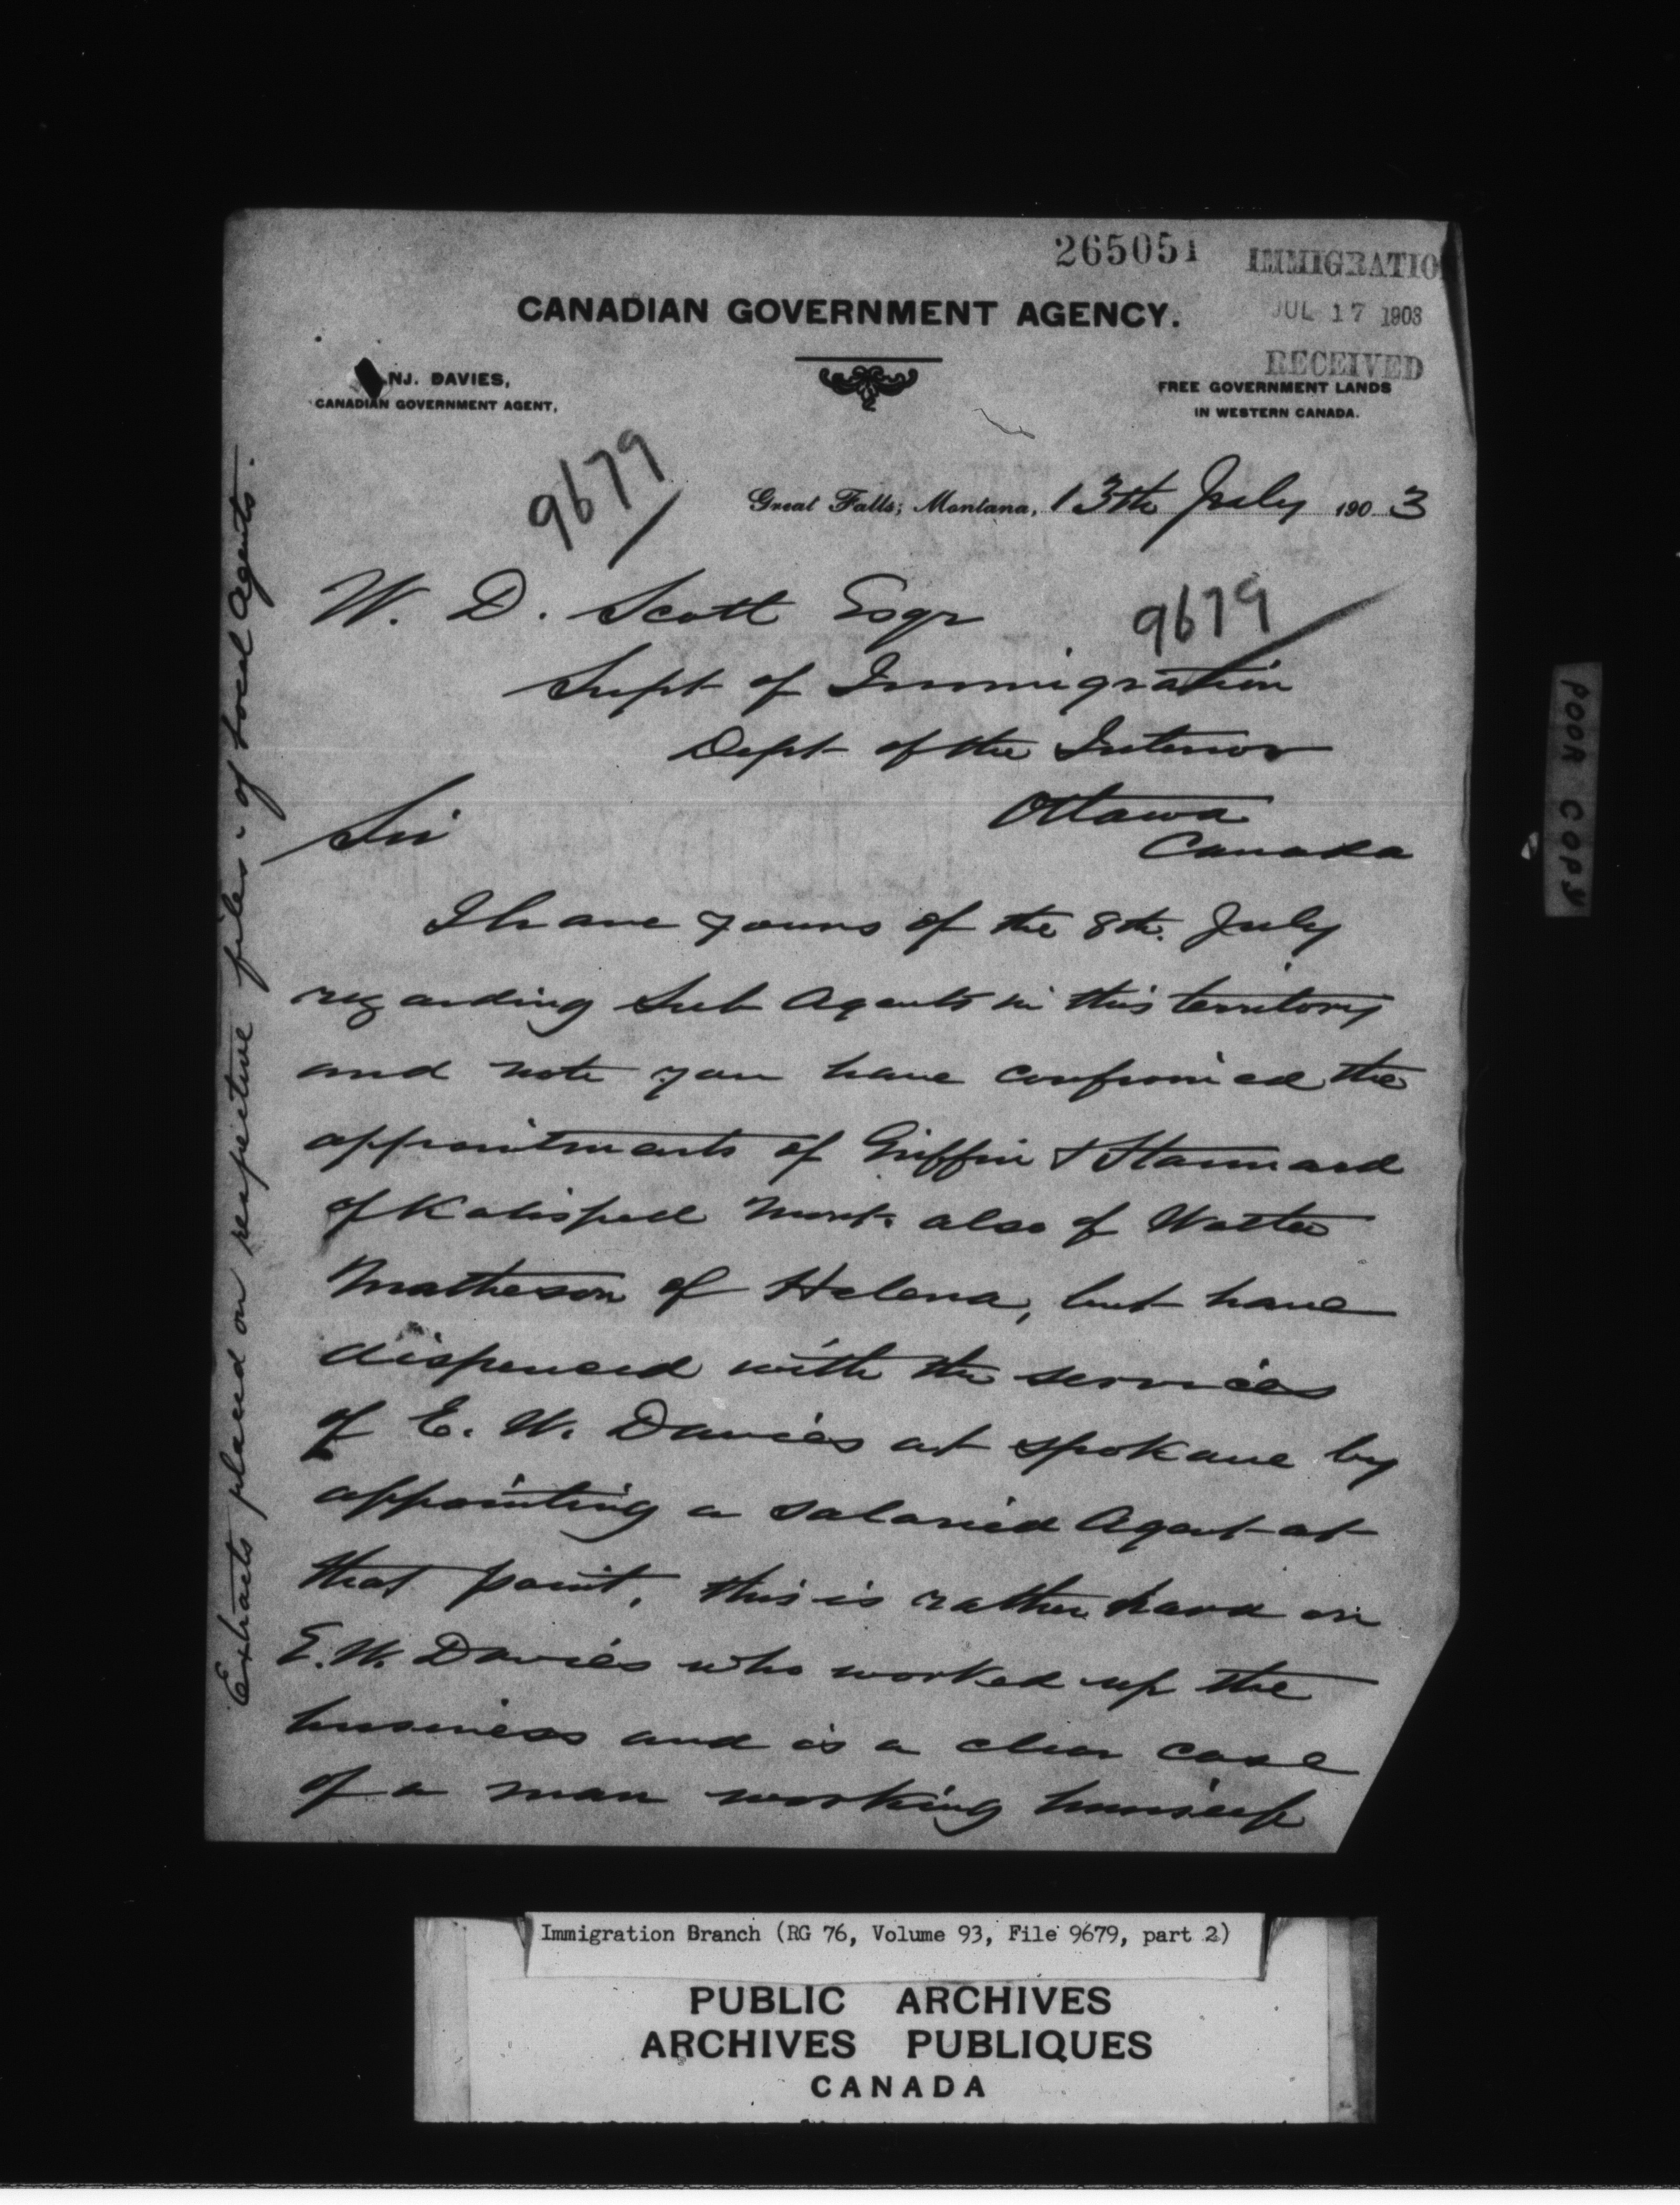 265051
IMMIGRATIO
JUL 17 1903
RECEIVED
CANADIAN GOVERNMENT AGENCY.
NJ. DAVIES,
CANADIAN GOVERNMENT AGENT,
FREE GOVERNMENT LANDS
IN WESTERN CANADA.
9679
Great Falls, Montana, 13th July 1903
W. D. Scott Esqr
9679
Supt of Immigration
Dept of the Interior
Ottawa
Canada
Sir
I have yours of the 8th. July
regarding Sub Agents in this territory
and note you have confirmed the
appointments of Griffin & Stannard
of Kalispell Mont. also of Walter
Matheson of Helena, but have
dispensed with the services
of E. W. Davies at Spokane by
appointing a salaried Agent at
that point, this is rather hard on
E. W. Davies who worked up the
business and is a clear case
of a man working himself
Extracts placed on respective files - of local Agents.
POOR COPY
Immigration Branch (RG 76, Volume 93, File 9679, part 2)
PUBLIC ARCHIVES
ARCHIVES PUBLIQUES
CANADA